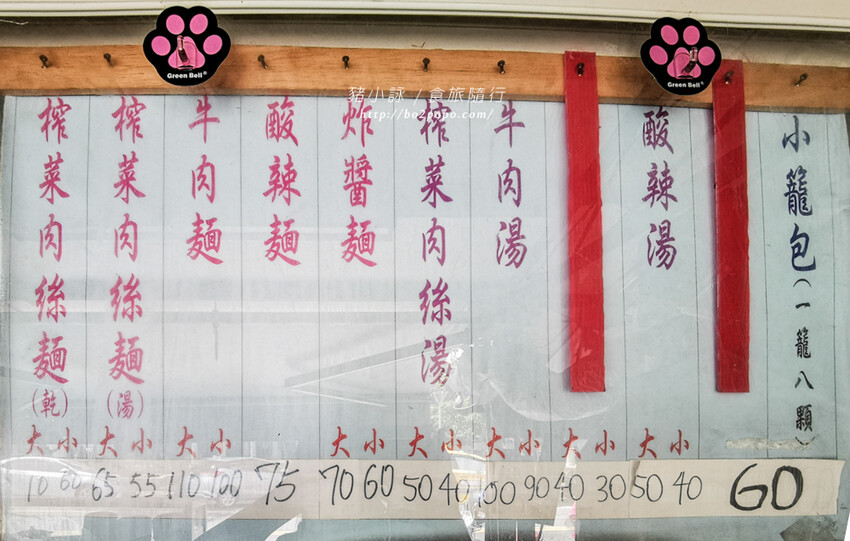 Green Bell®
Green Bell®
豬小詠 / 食旅隨行
http://bo2popo.com/
小籠包(一籠八顆) 60
酸辣湯 大小 50 40
大小 40 30
牛肉湯 大小 100 90
榨菜肉絲湯 大小 50 40
炸醬麵 大小 70 60
酸辣麵 75
牛肉麵 大小 110 100
榨菜肉絲麵(湯) 大小 65 55
榨菜肉絲麵(乾) 大小 70 60